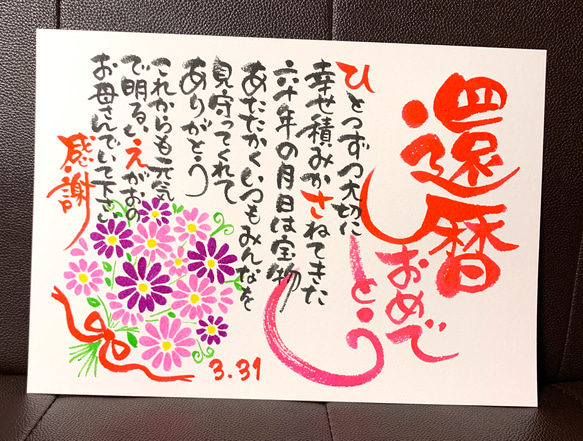 還暦
おめで
とう
ひとつずつ大切に
幸せ積みかさねてきた
六十年の月日は宝物
あたたかくいつもみんなを
見守ってくれて
ありがとう
これからも元気
で明るいえがおの
お母さんでいて下さい
感謝
3.31